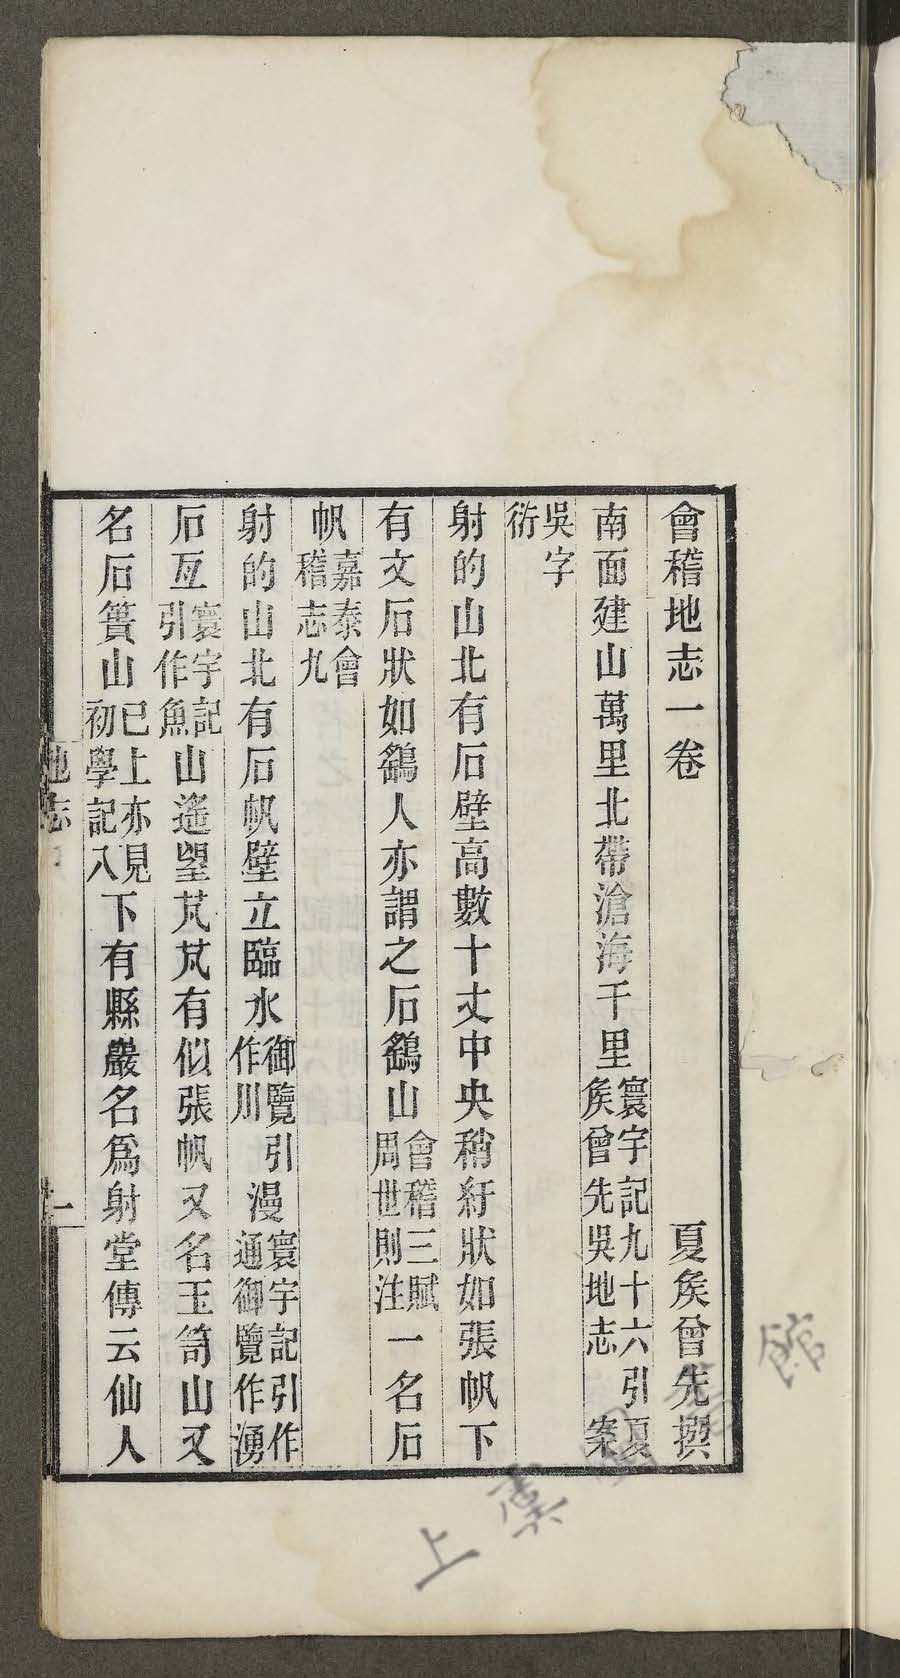 會稽地志一卷　夏矦曾先撰
南面建山萬里北帶滄海千里寰宇記九十六引夏矦曾先吳地志　案
吳字衍
射的山北有石壁高數十丈中央稍紆狀如張帆下
有文石狀如鷂人亦謂之石鷂山會稽三賦周世則注一名石
帆嘉泰會稽志九
射的山北有石帆壁立臨水御覽引作川漫寰宇記引作通御覽作湧
石亙寰宇記引作魚山遙望芃芃有似張帆又名玉笥山又
名石簣山已上亦見初學記八下有縣巖名爲射堂傳云仙人
地志
一
上虞圖書館